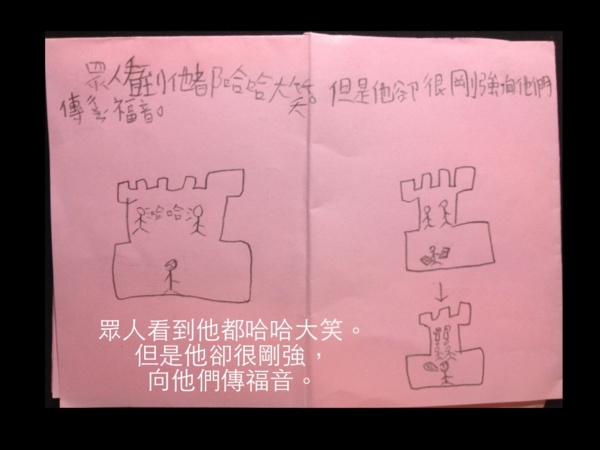 眾人看到他都哈哈大笑。但是他卻很剛強向他們
傳福音。
哈哈
眾人看到他都哈哈大笑。
但是他卻很剛強，
向他們傳福音。